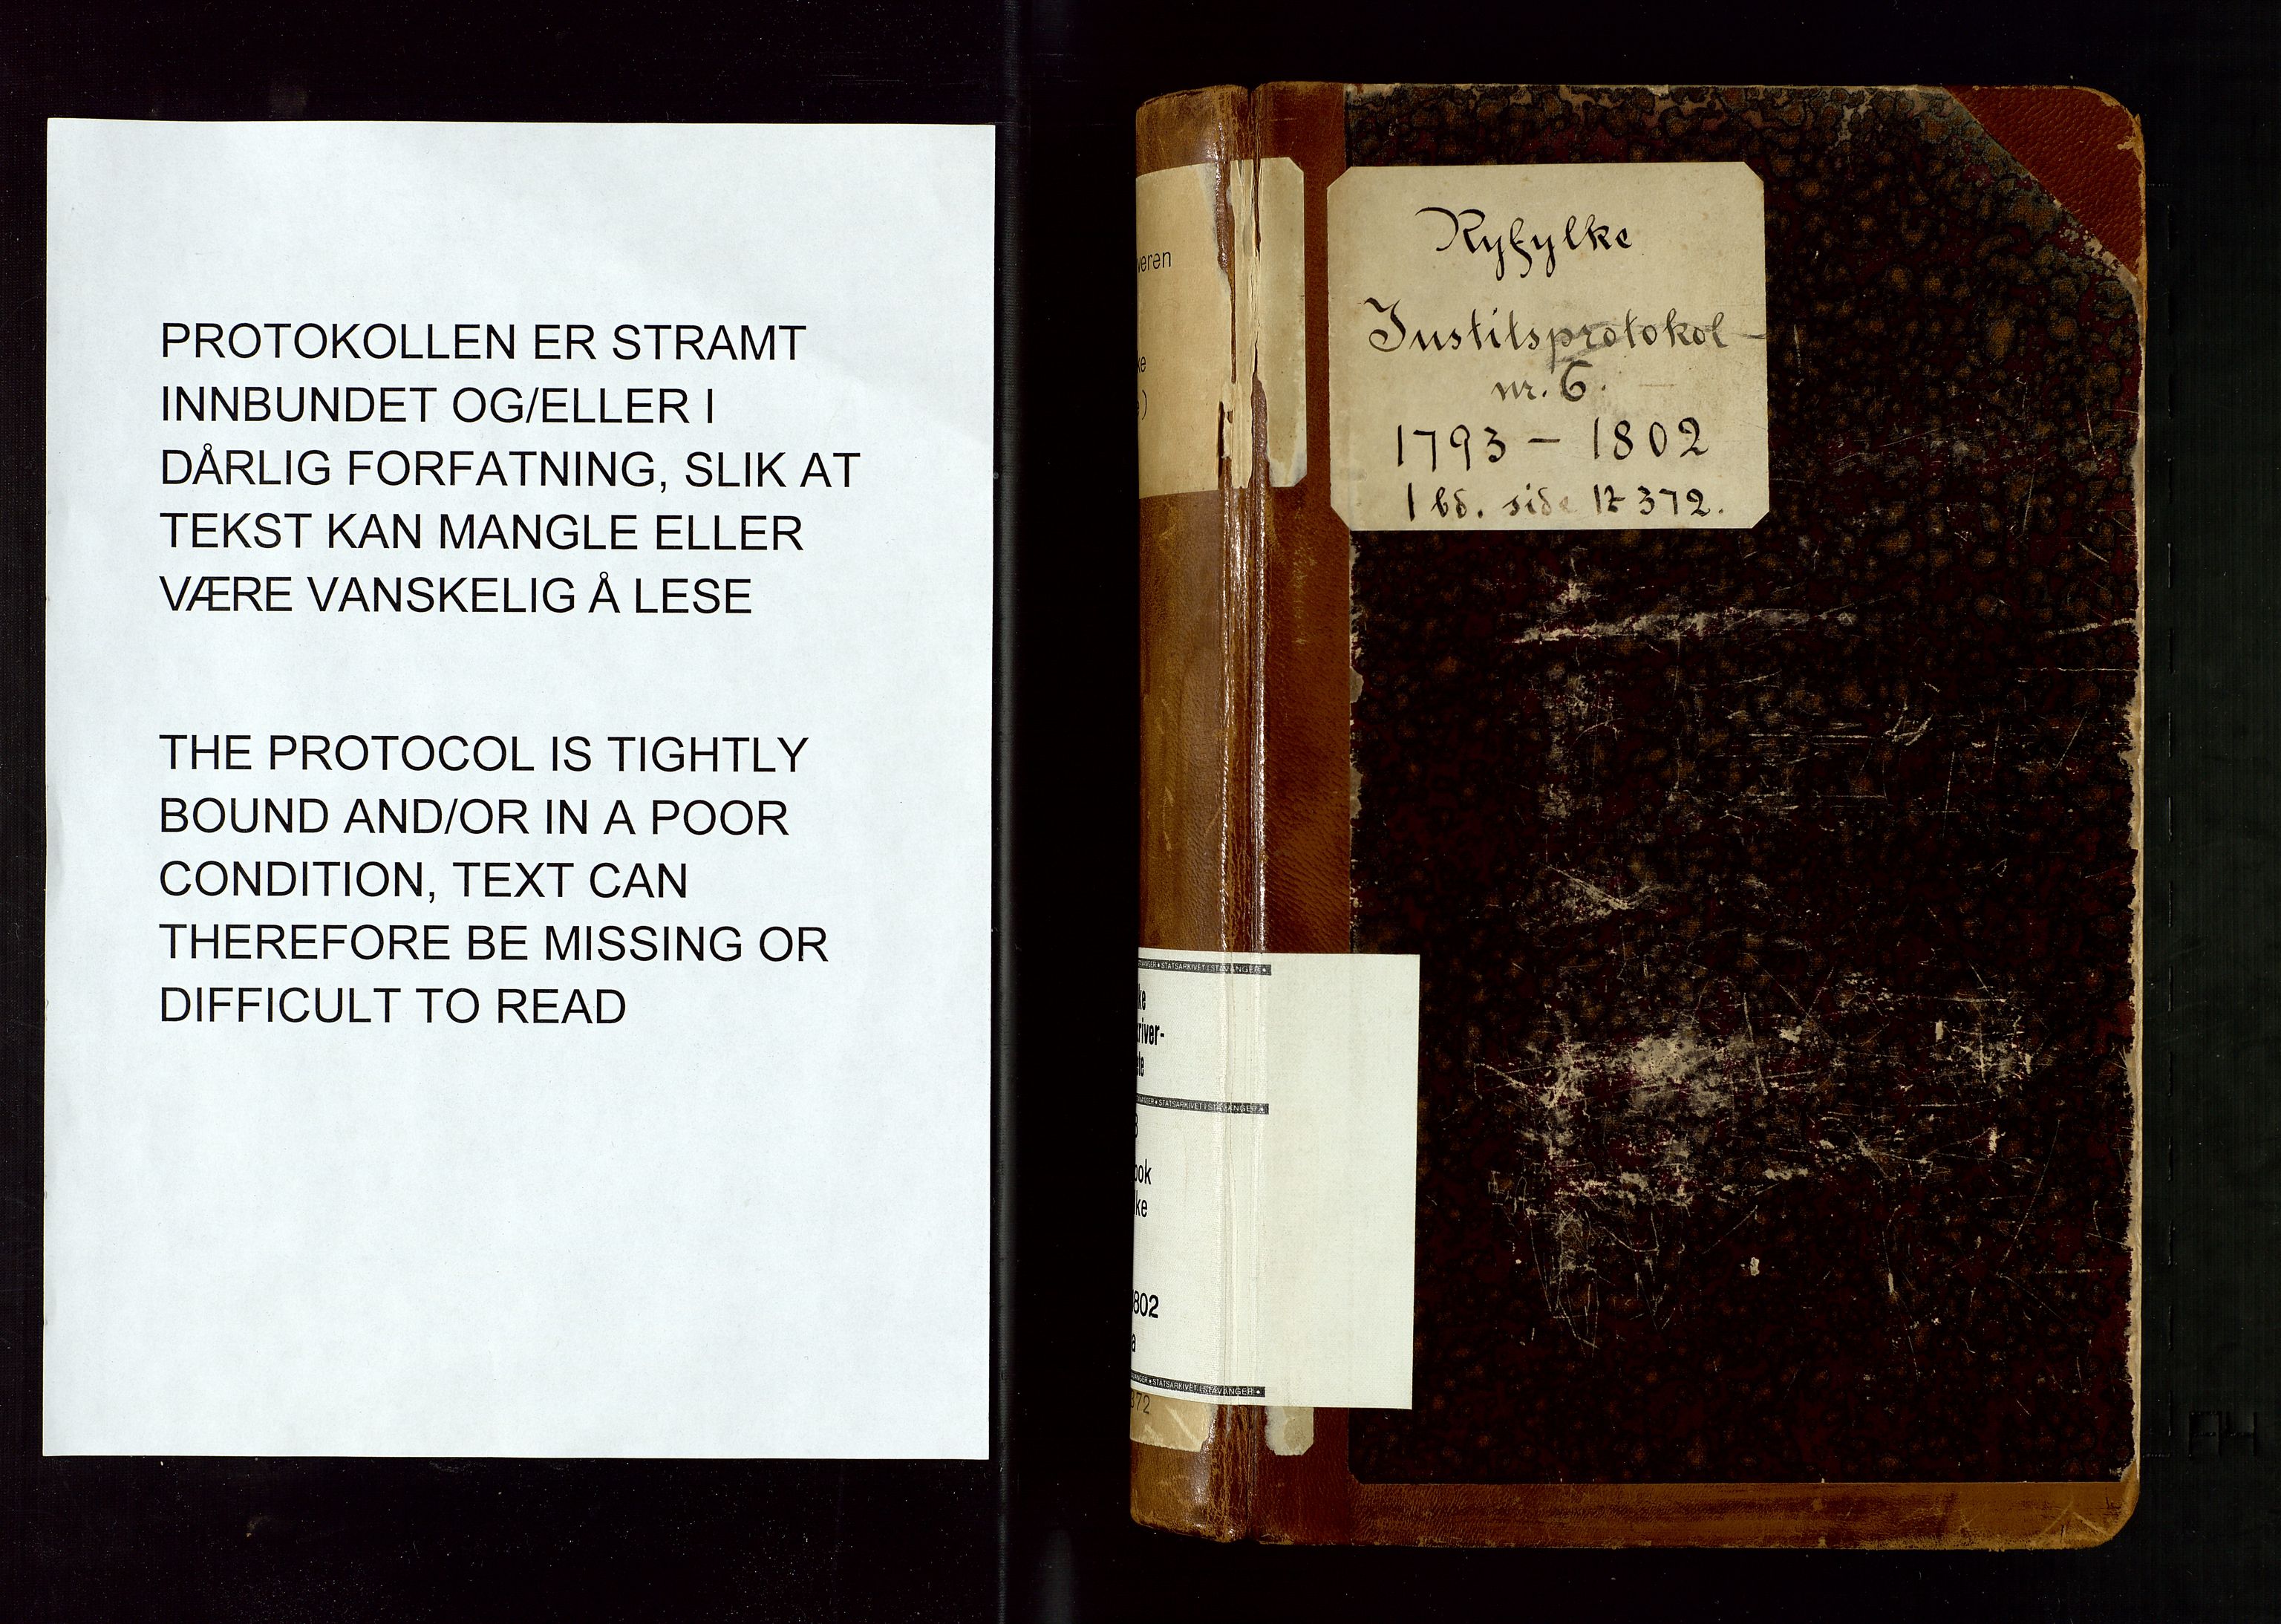 PROTOKOLLEN ER STRAMT
INNBUNDET OG/ELLER I
DÅRLIG FORFATNING, SLIK AT
TEKST KAN MANGLE ELLER
VÆRE VANSKELIG Å LESE
THE PROTOCOL IS TIGHTLY
BOUND AND/OR IN A POOR
CONDITION, TEXT CAN
THEREFORE BE MISSING OR
DIFFICULT TO READ
Ryfylke
Justitsprotokol
nr. 6.
1793 - 1802
1 bd. side 372.
veren
ke
)
STATSARKIVET I STAVANGER
ke
kriver-
STATSARKIVET I STAVANGER
ook
ke
802
a
STATSARKIVET I STAVANGER
372